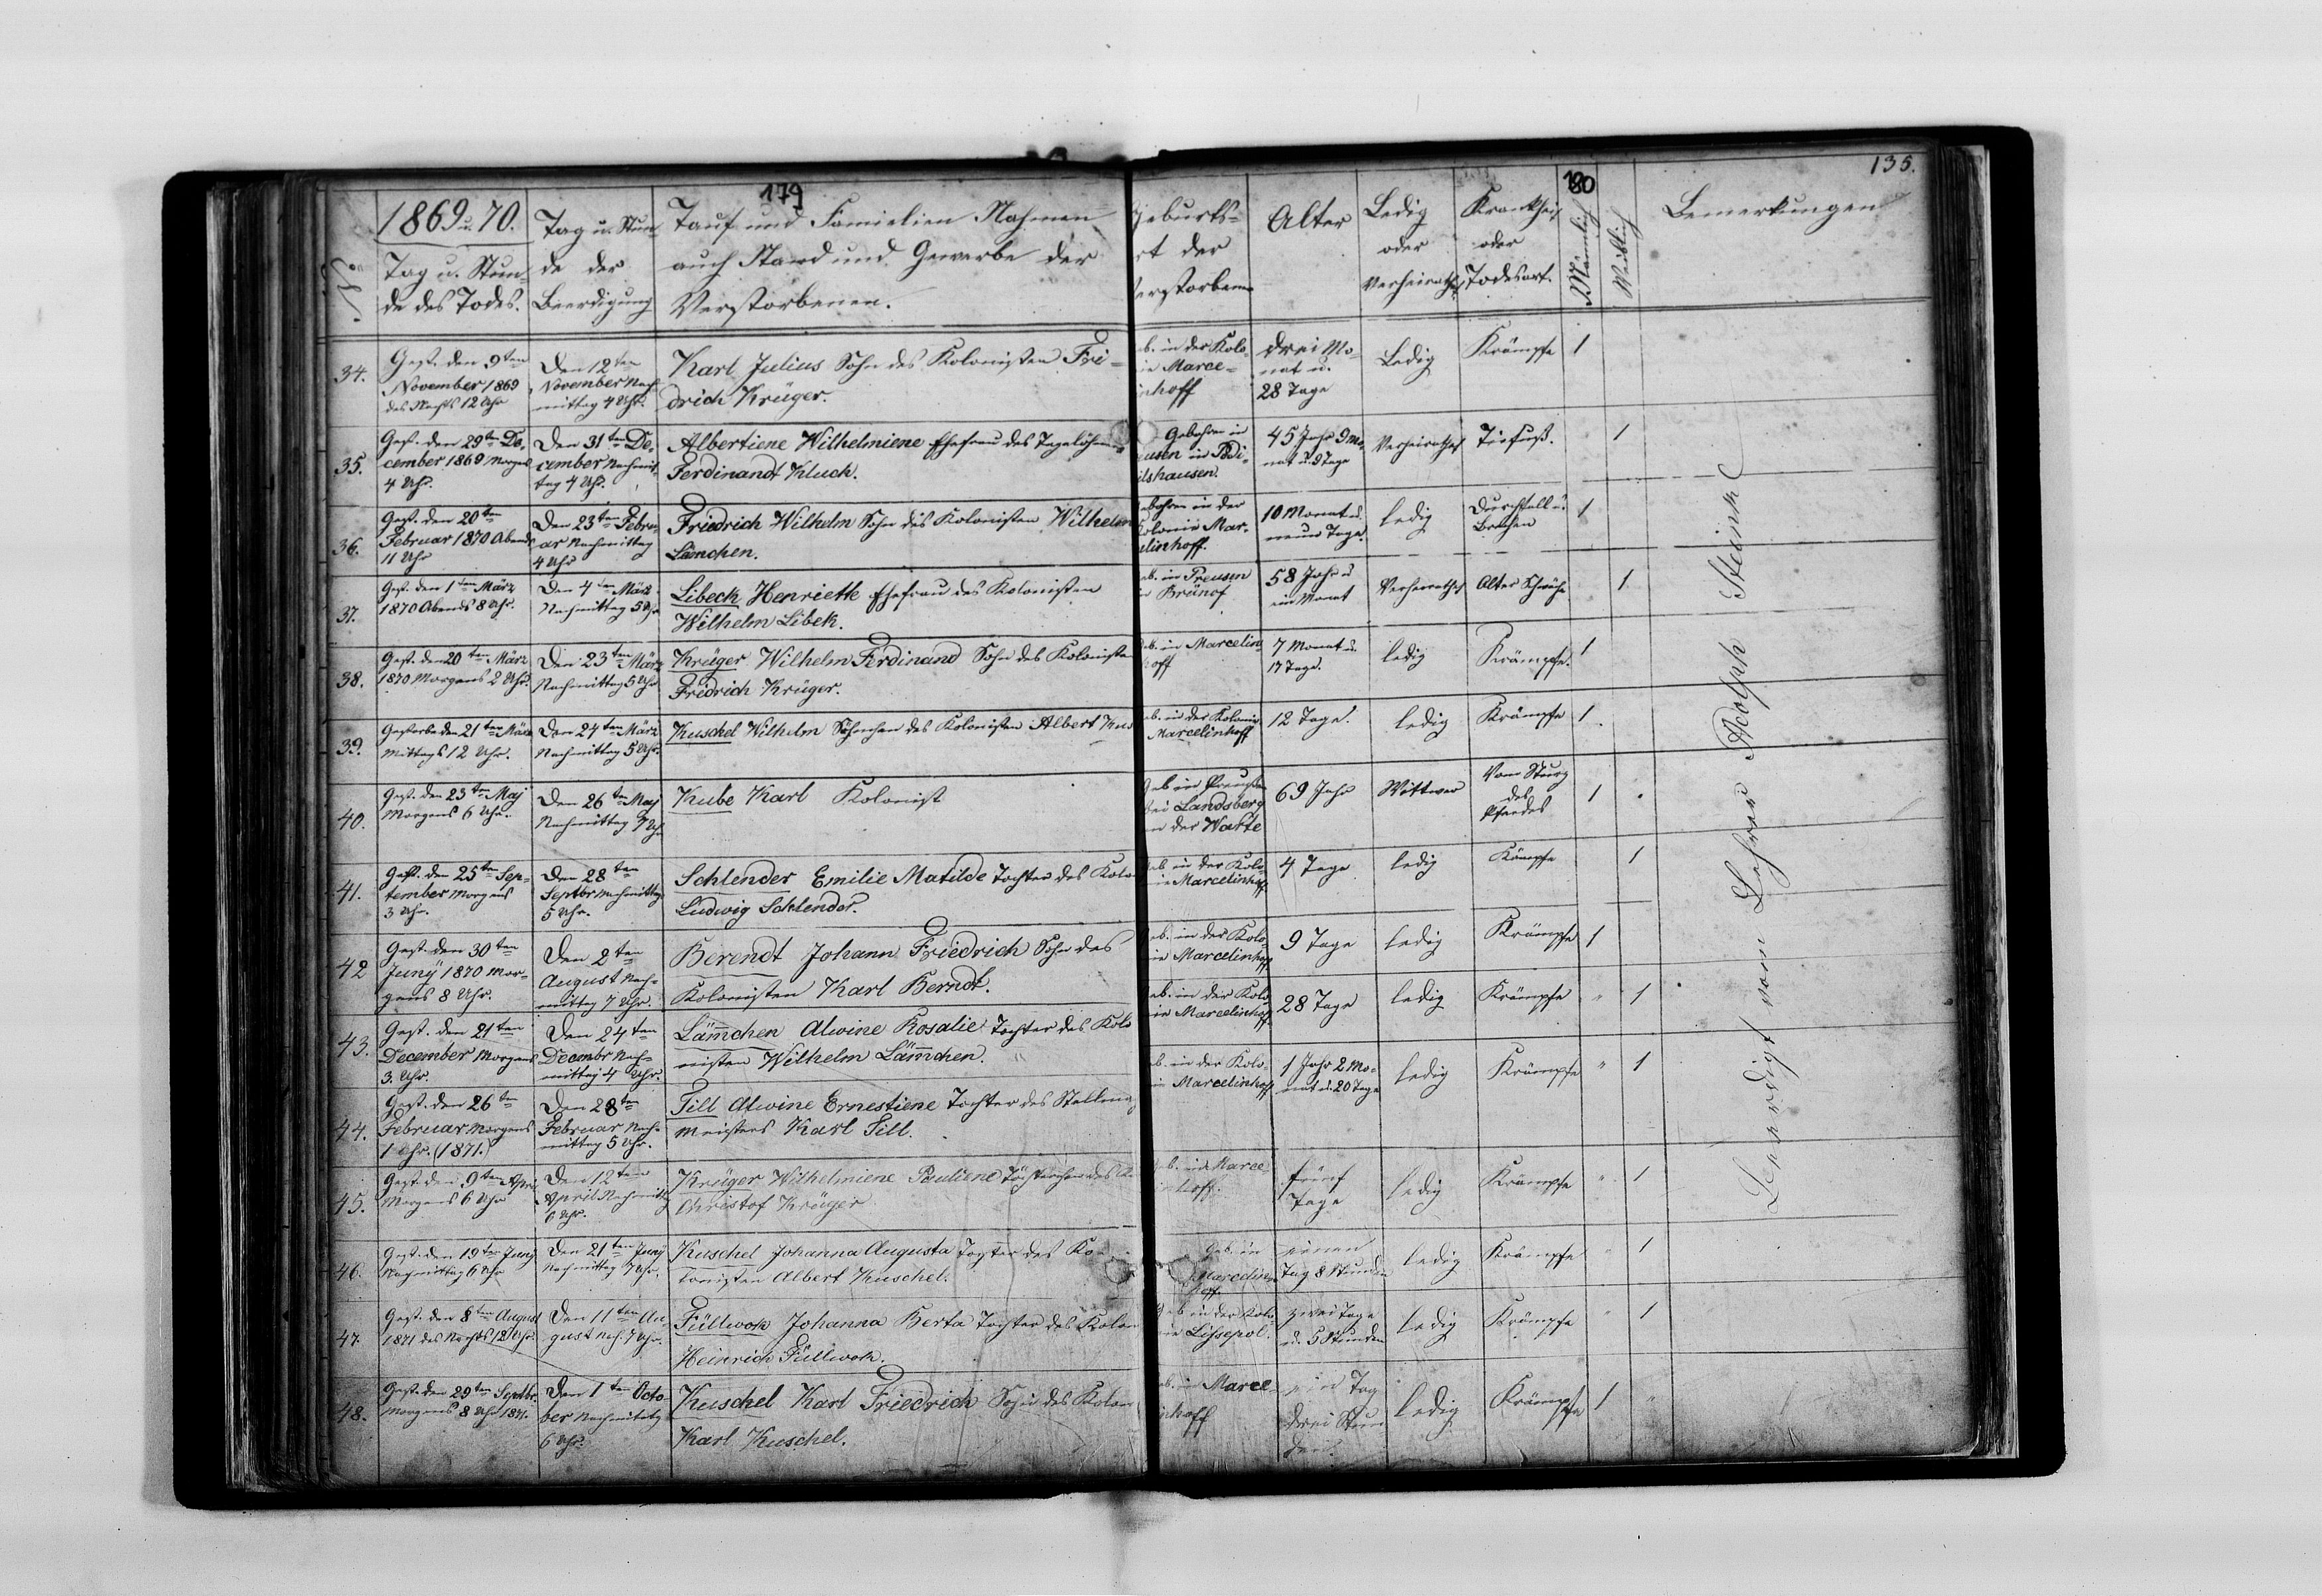 179
180
135.
No
1869 u. 70.
Tag u. Stun-
de des Todes.
Tag u. Stun-
de der
Beerdigung
Tauf und Familien Nahmen
auch Stand und Gewerbe der
Verstorbenen.
Geburts-
rt der
erstorbenen
Alter
Ledig
oder
Verheirathet
Krankheit
oder
Todesart.
Männlich
Weiblich
Bemerkungen
34.
Gest. den 9ten
November 1869
des Nachts 12 Uhr
Den 12ten
November Nach-
mittag 4 Uhr.
Karl Julius Sohn des Kolonisten Fri-
drich Krüger.
b. in der Kolo-
ie Marce-
inhoff
drei Mo-
nat u.
28 Tage
Ledig
Krämpfe
1
35.
Gest. den 29ten De-
cember 1869 Morgens
4 Uhr.
Den 31ten De-
cember Nachmit-
tag 4 Uhr.
Albertiene Wilhelmiene Ehefrau des Tagelöhners
Ferdinandt Kluck.
Gebohren in
eusen in
ilshausen.
45 Jahr 9 Mo-
nat u. 9 Tage
Verheirathet
1
36.
Gest. den 20ten
Februar 1870 Abends
11 Uhr
Den 23ten Febru-
ar Nachmittag
4 Uhr
Friedrich Wilhelm Sohn des Kolonisten Wilhelm
Lämchen.
ebohren in der
olonie Mar-
elinhoff.
10 Monat u.
neun Tage.
ledig
Durchfall u.
Brechen
1
37.
Gest. den 1ten März
1870 Abends 8 Uhr.
Den 4ten März
Nachmittag 5 Uhr
Libeck Henriette Ehefrau des Kolonisten
Wilhelm Libek.
eb. in Preusen
Brünof
58 Jahr u
ein Monat
Verheirathet
Alter Schwäche
1
38.
Gest. den 20ten März
1870 Morgens 2 Uhr.
Den 23ten März
Nachmittag 5 Uhr
Krüger Wilhelm Ferdinand Sohn des Koloniste
Fridrich Krüger.
eb. in Marcelin
hoff
7 Monat u.
17 Tage.
ledig
Krämpfe.
1
39.
Gestorbe den 21ten März
Mittags 12 Uhr.
Den 24ten März
Nachmittag 5 Uhr.
Kuschel Wilhelm Söhnchen des Kolonisten Albert Kus
eb. in der Kolonie
Marcelinhoff
12 Tage.
ledig
Krämpfe
1.
40.
Gest. den 23ten Maj
Morgens 6 Uhr.
Den 26ten Maj
Nachmittag 7 Uhr
Kube Karl Kolonist
Geb in Preußen
bei Landsberg
an der Warte
69 Jahr
Wittwer
Vom Sturz
des
Pferdes
1
41.
Gest. den 25ten Sep-
tember Morgens
3 Uhr.
Den 28ten
Septbr Nachmittag
5 Uhr.
Schlender Emilie Matilde Tochter des Kolo
Ludwig Schlender.
Geb in der Kolo-
ie Marcelinhoff
4 Tage
ledig
Kämpfe
1
42
Gest. den 30ten
Juny 1870 Mor-
gens 8 Uhr.
Den 2ten
August Nach-
mittag 7 Uhr.
Berendt Johann Friedrich Sohn des
Kolonisten Karl Berndt.
eb. in der Kolo-
ie Marcelinhoff
9 Tage
ledig
Krämpfe
1
43.
Gest. den 21ten
December Morgens
3. Uhr.
Den 24ten
Decembr Nach-
mittag 4 Uhr.
Läm̄chen Alwine Rosalie Tochter des Kolo
nisten Wilhelm Läm̄chen.
eb. in der Kolo-
ie Marcelinhoff
28 Tage
ledig
Krämpfe
" 1
44.
Gest. den 26ten
Februar Morgens
1 Uhr. (1871.)
Den 28ten
Februar Nach-
mittag 5 Uhr.
Till Alwine Ernestiene Tochter des Stellma
meisters Karl Till.
eb. in der Kolo-
ie Marcelinhoff
1 Jahr 2 Mo-
nat u. 20 Tage
ledig
Krämpfe
" 1
45.
Gest. den 9ten Apri
Morgens 6 Uhr
Den 12ten
April Nachmittag
6 Uhr.
Krüger Wilhelmiene Pauliene Töchterchen des
Christof Krüger
eb. in Marce-
inhoff.
fünf
Tage
ledig
Krämpfe
" 1
46.
Gest. den 19ten Juny
Nachmittag 6 Uhr
Den 21ten Juny
Nachmittag 7 Uhr.
Kuschel Johanna Augusta Tochter des Ko-
lonisten Albert Kuschel.
Geb. in
Marcelin
hoff.
einen
Tag 8 Stunden
ledig
Krämpfe
" 1
47.
Gest. den 8ten August
1871 des Nachts 12 Uhr
Den 11ten Au-
gust Nach. 7 Uhr.
Füllwok Johanna Berta Tochter des Kolon
Heinrich Füllwok.
Geb in der Kolo
nie Lissepol.
zwei Tage
u. 5 Stunden
ledig
Krämpfe
" 1
48.
Gest. den 29ten Septbr.
Morgens 8 Uhr 1871.
Den 1ten Octo-
ber Nachmittag
6 Uhr.
Kuschel Karl Friedrich Sohn des Kolon
Karl Kuschel.
eb. in Marcel
inhoff
ein Tag
drei Stun
den.
ledig
Krämpfe
1 "
Beerdigt vom Lehrer Adolph Steinke